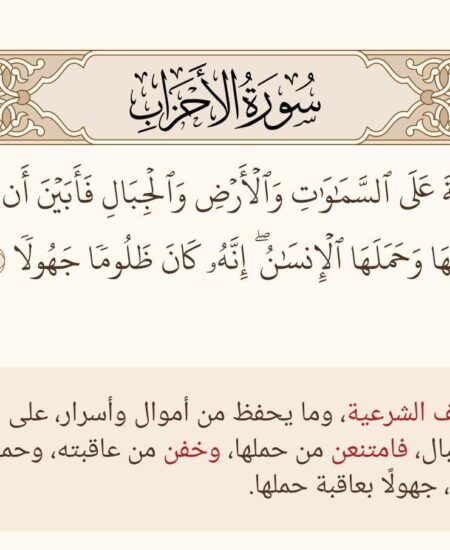 سُورَةُ الأَحْزَابِ
عَلَى ٱلسَّمَٰوَٰتِ وَٱلْأَرْضِ وَٱلْجِبَالِ فَأَبَيْنَ أَن
وَحَمَلَهَا ٱلْإِنسَٰنُۖ إِنَّهُۥ كَانَ ظَلُومًا جَهُولًا
الشرعية، وما يحفظ من أموال وأسرار، على
فامتنعن من حملها، وخفن من عاقبته،
، جهولًا بعاقبة حملها.